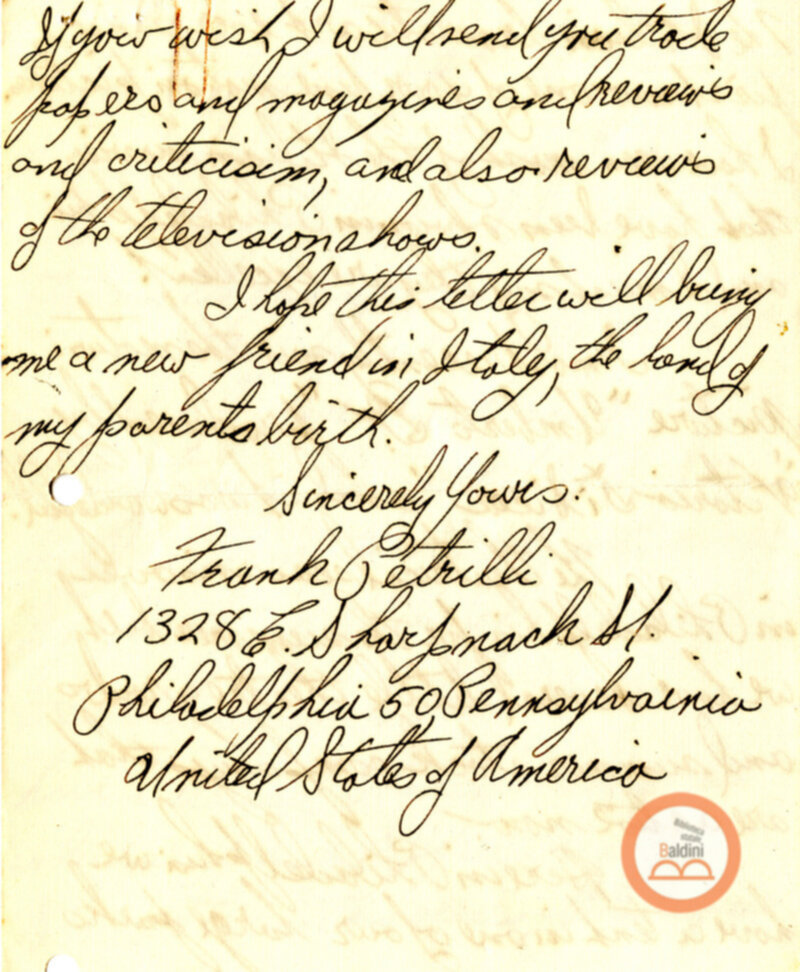 If you wish I will send you trade
papers and magazines and reveiws
and criticisim, and also reveiws
of the television shows.
I hope this letter will bring
me a new friend in Italy, the land of
my parents birth.
Sincerely Yours.
Frank Petrilli
1328 E. Sharpnack St.
Philadelphia 50, Pennsylvainia
United States of America
Biblioteca
statale
Baldini